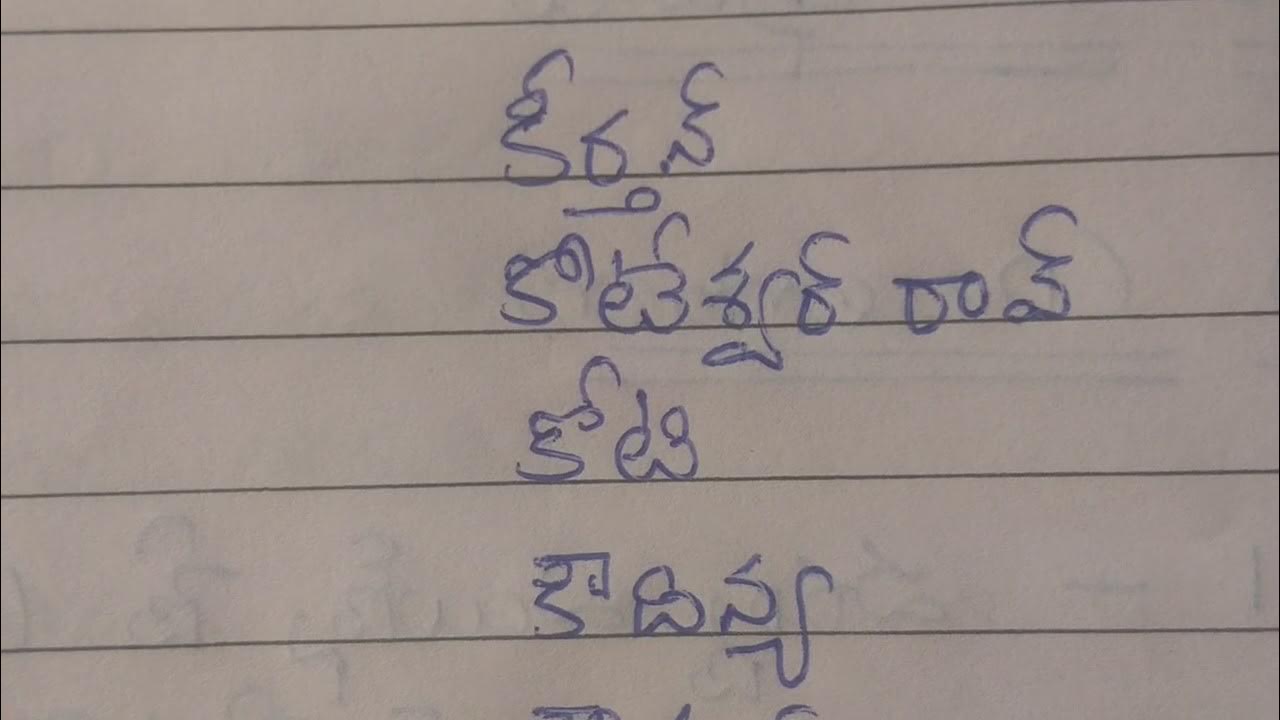 కీర్తన్
కోటేశ్వర్ రావ్
కోటి
కౌదిన్య